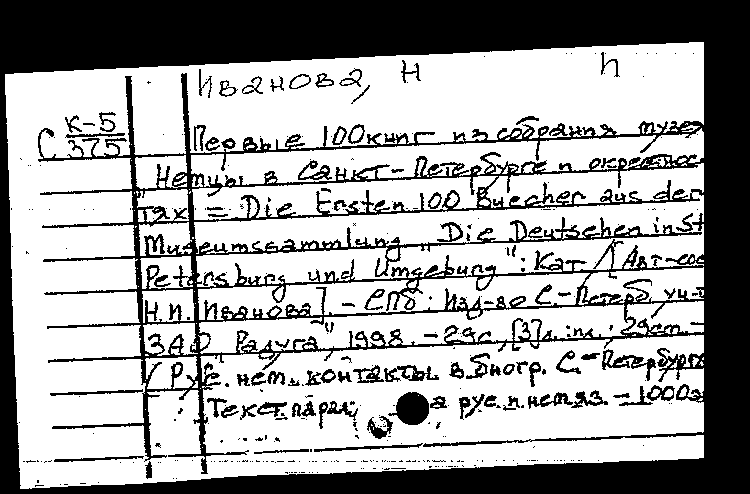 Иванова, Н И
С К-5/375
Первые 100 книг из собрания музея
„Немцы в Санкт-Петербурге и окрестнос-
тях = Die Ersten 100 Buecher aus der
Museumssammlung „Die Deutschen in St
Petersburg und Umgebung": Кат. / [Авт-сос
Н.И. Иванова]. – СПб: Изд-во С.-Петерб. ун-т
ЗАО „Радуга", 1998. – 29с, [3]л. ил.; 29см –
/ Рус. нем. контакты в биогр. С.-Петербурга
Текст парал. на рус. и нем яз. – 1000э